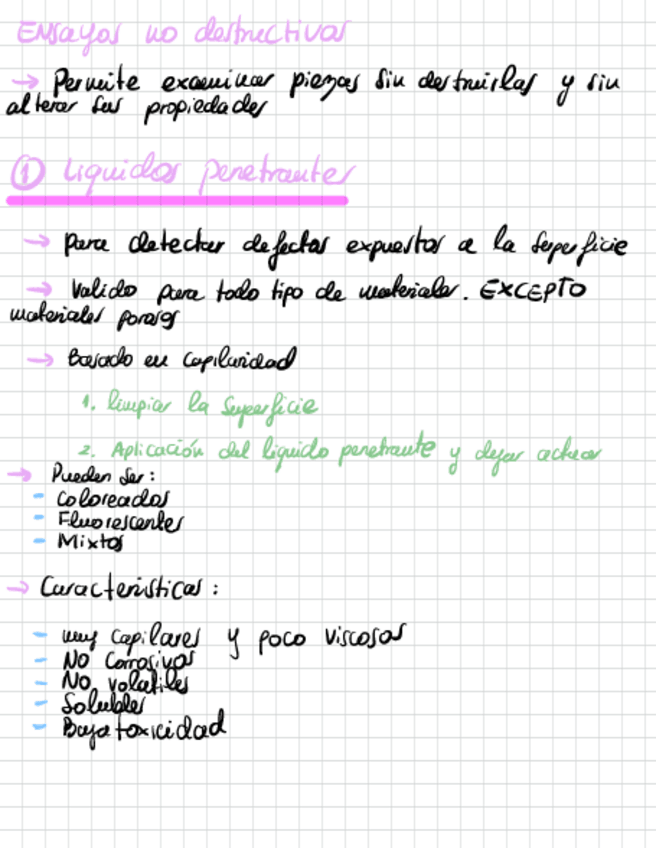 Ensayos no destructivos
→ Permite examinar piezas sin destruirlas y sin
alterar sus propiedades
① Liquidos penetrantes
→ para detectar defectos expuestos a la superficie
→ Valido para todo tipo de materiales. EXCEPTO
materiales porosos
→ Basado en capilaridad
1. limpiar la superficie
2. Aplicación del liquido penetrante y dejar actuar
→ Pueden ser:
- Coloreados
- Fluorescentes
- Mixtos
→ Caracteristicas:
- muy capilares y poco viscosos
- NO corrosivos
- NO volatiles
- Solubles
- Baja toxicidad